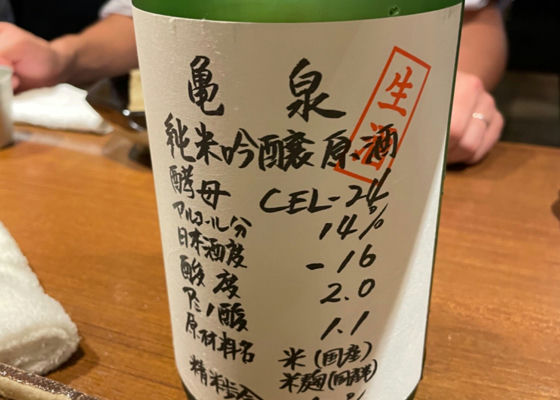 亀泉
生酒
純米吟醸原酒
酵母 CEL-24
アルコール分 14%
日本酒度 -16
酸度 2.0
アミノ酸 1.1
原材料名 米(国産)
米麹(国産米)
精米歩合